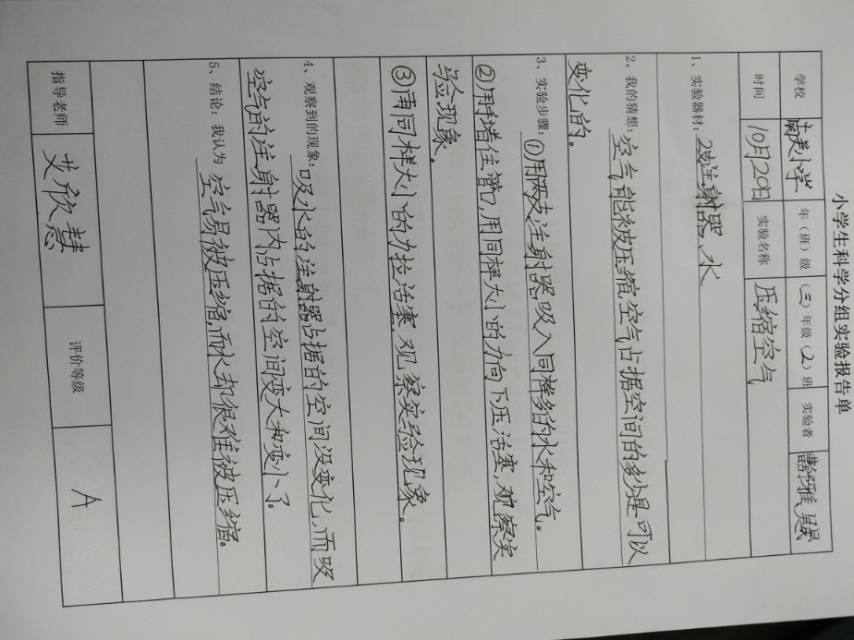 小学生科学分组实验报告单
学校 南关小学 年（班）级 （三）年级（2）班 实验者
时间 10月20日 实验名称 压缩空气
1、实验器材：2支注射器、水
2、我的猜想：空气能被压缩，空气占据空间的多少是可以
变化的。
3、实验步骤：①用两支注射器，吸入同样多的水和空气。
②用手堵住管口，用同样大小的力向下压活塞，观察实
验现象。
③再同样大小的力拉活塞，观察实验现象。
4、观察到的现象：吸水的注射器占据的空间没变化，而吸
空气的注射器内占据的空间变大和变小了。
5、结论：我认为 空气易被压缩，而水却很难被压缩。
指导老师 艾欣慧 评价等级 A